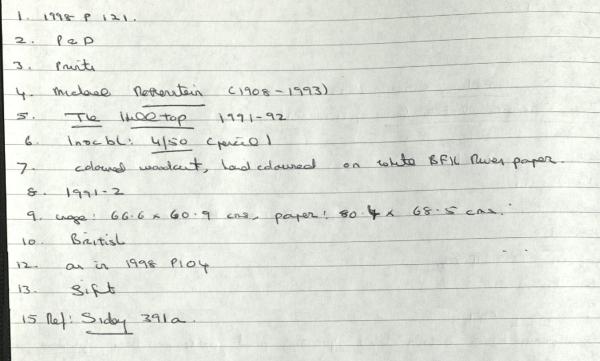 1. 1998 P 121.
2. P & D
3. Prints
4. Michael Rothenstein (1908-1993)
5. The Hilltop 1991-92
6. Inscbl: 4/50 (pencil)
7. coloured woodcut, hand coloured on white BFK Rives paper.
8. 1991-2
9. image: 66.6 x 60.9 cms, paper: 80.4 x 68.5 cms.
10. British
12. as in 1998 P104
13. Gift
15 Ref: Siday 391a.